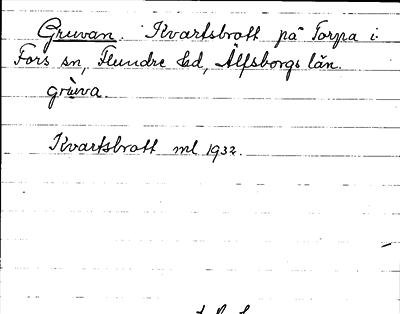 Gruvan. Kvartsbrott på Torpa i
Fors sn, Flundre hd, Älfsborgs län.
grùva
Kvartsbrott ml 1932.